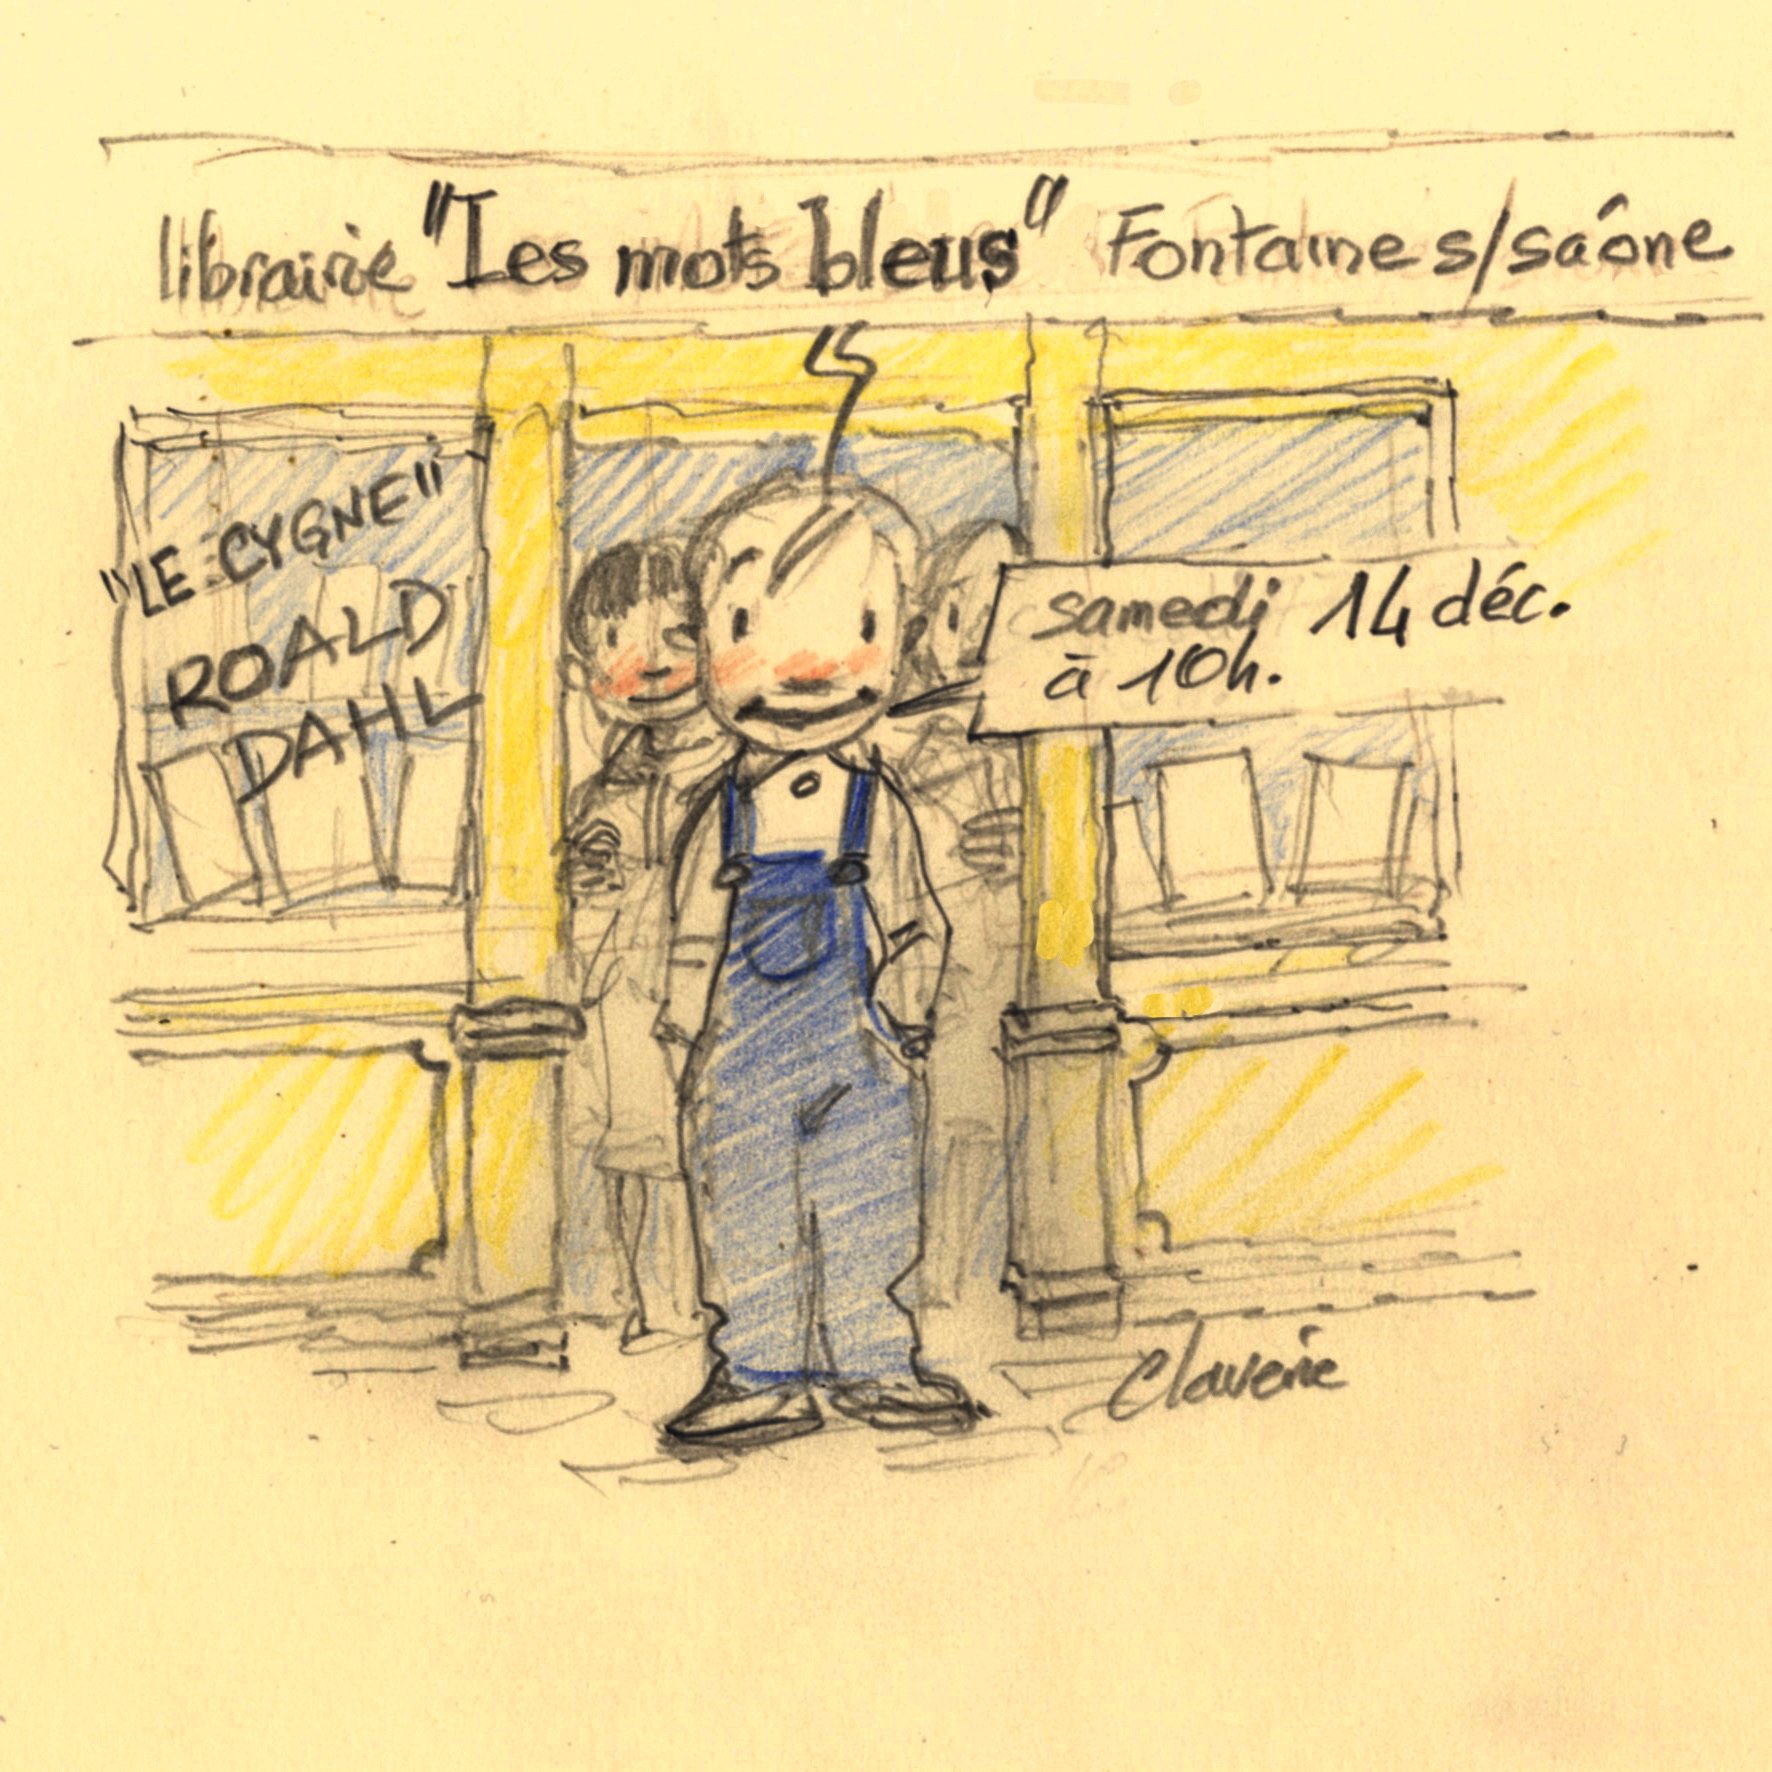 librairie "Les mots bleus" Fontaine s/saône
"LE CYGNE"
ROALD
DAHL
samedi 14 déc.
à 10h.
Claverie